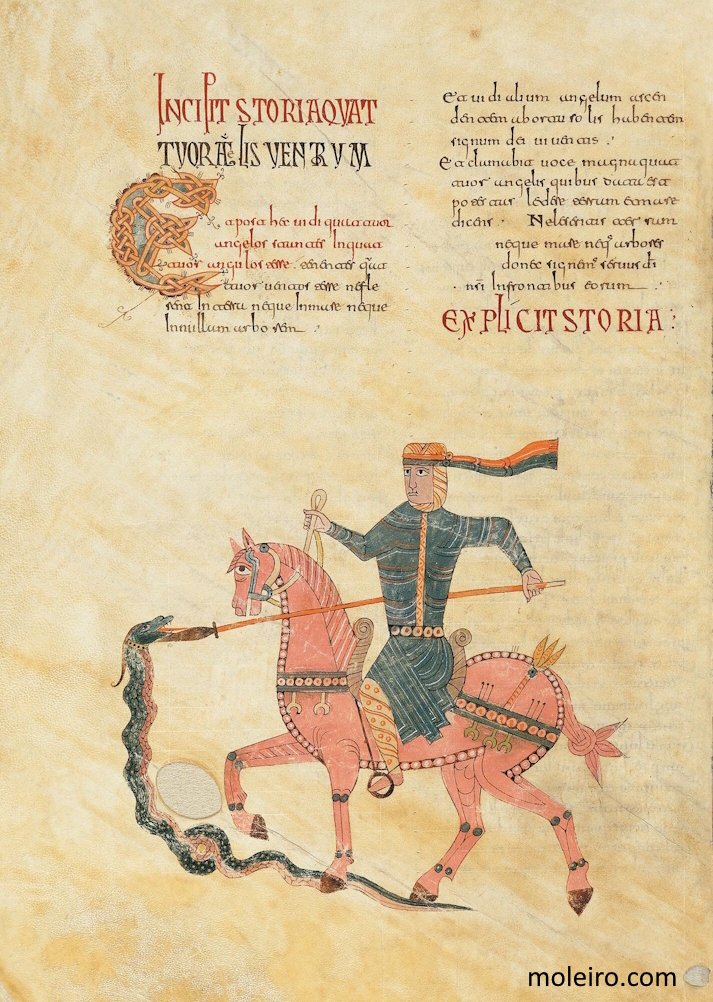 INCIPIT STORIA QVAT
TVOR
Et post hec uidi quattuor
angelos stantes In quat
tuor angulos terre · tenentes
tuor uentos terre ne fle
In terra neque In mare neque
In ullam arborem ·
Et uidi alium angelum ascen
dentem ab ortu solis habentem
signum dei uiuentis :
Et clamabit uoce magna quat
tuor angelis quibus data est
potestas ledere terram et mare
dicens · Ne leseritis terram
neque mare neq; arbores
donec
In frontibus eorum
EXPLICIT STORIA :
moleiro.com